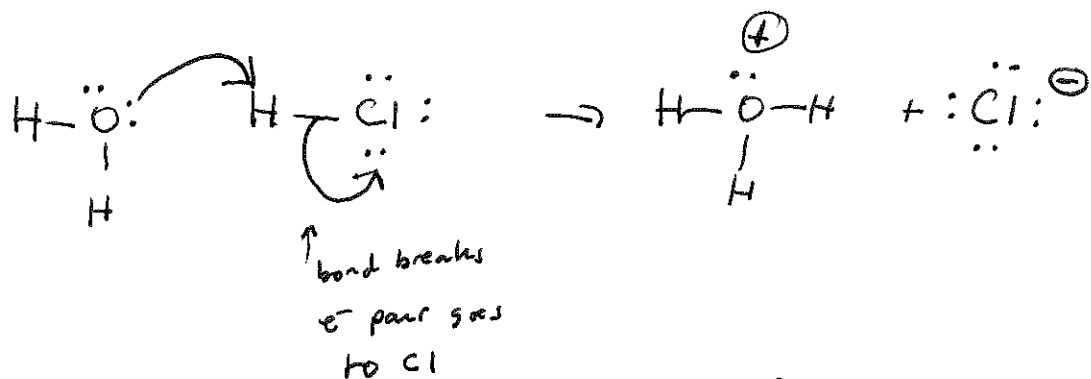 H–Ö: H–C̈l: → H–Ö–H ⊕ + :C̈l: ⊖
H
H
↑ bond breaks
e⁻ pair goes
to Cl